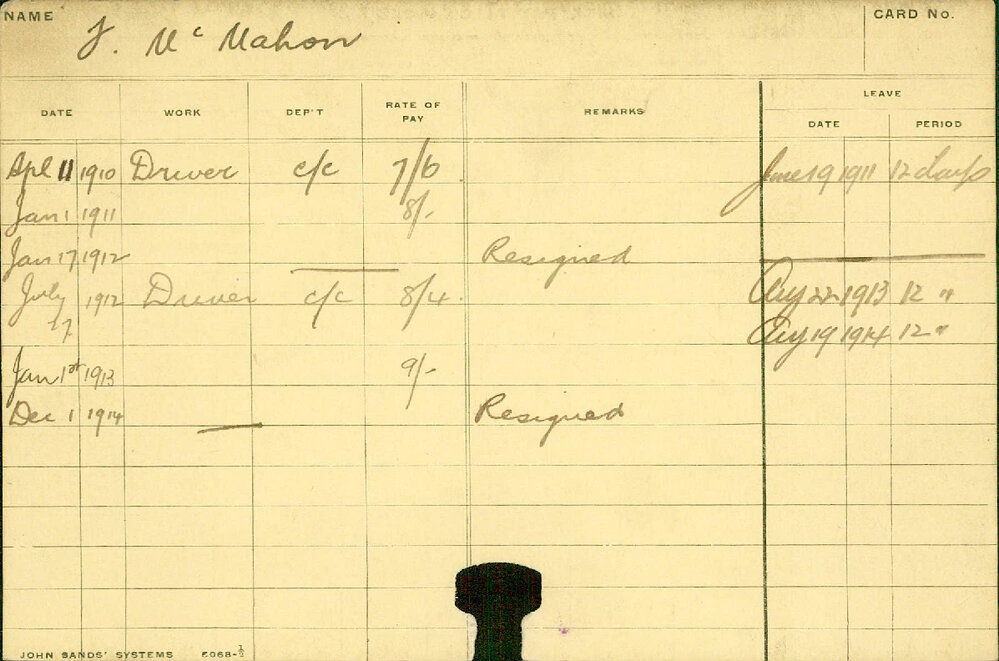 NAME J. McMahon CARD No.
LEAVE
DATE WORK DEP'T RATE OF PAY REMARKS DATE PERIOD
Apl 11 1910 Driver c/c 7/6 June 19 1911 12 days
Jan 1 1911 8/-
Jan 17 1912 Resigned
July 17 1912 Driver c/c 8/4 Aug 22 1913 12 "
Aug 19 1914 12 "
Jan 1st 1913 9/-
Dec 1 1914 Resigned
JOHN SANDS' SYSTEMS